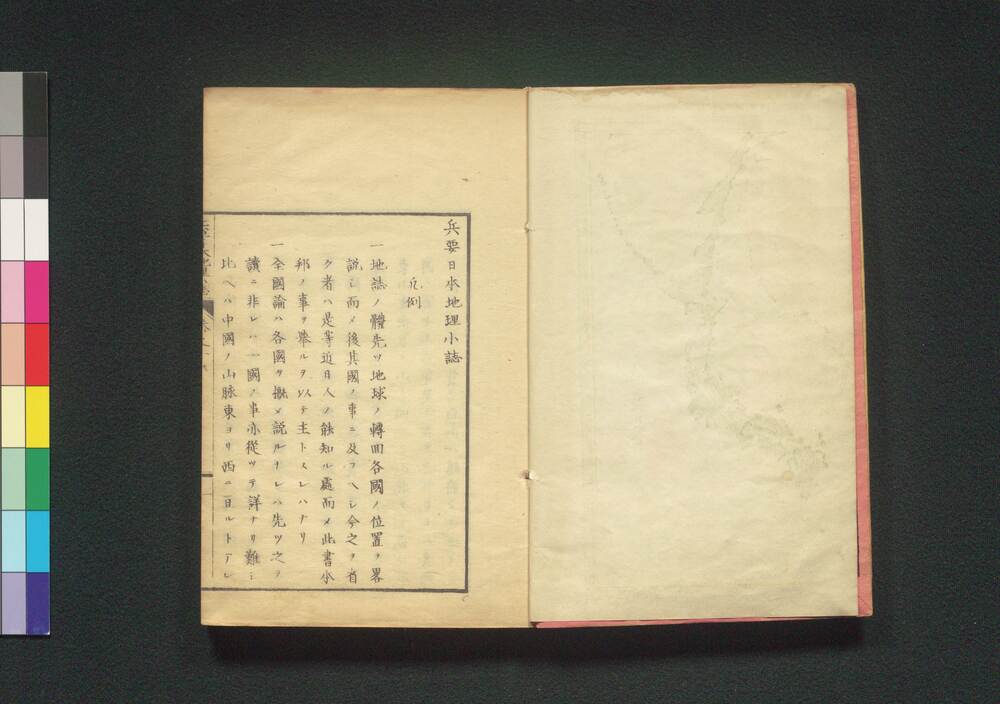 兵要日本地理小誌
凡例
一地誌ノ體先ツ地球ノ轉回各國ノ位置ヲ畧
説シ而メ後其國ノ事ニ及フヘシ今之ヲ省
ク者ハ是等近日人ノ能知ル處而メ此書本
邦ノ事ヲ擧ルヲ以テ主トスレハナリ
一全國論ハ各國ヲ概メ説ルナレハ先ツ之ヲ
讀ニ非レハ一國ノ事亦從ツテ詳ナリ難シ
比ヘハ中國ノ山脉東ヨリ西ニ亘ルトアレ